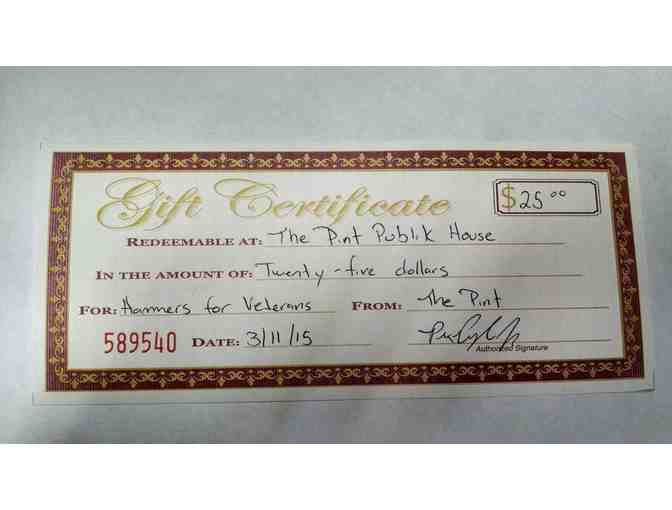 Gift Certificate
$25.00
REDEEMABLE AT: The Pint Publik House
IN THE AMOUNT OF: Twenty-five dollars
FOR: Hammers for Veterans FROM: The Pint
589540 DATE: 3/11/15
Authorized Signature